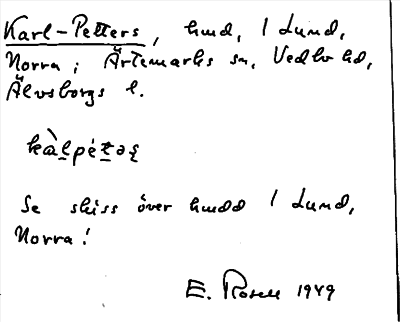 Karl-Petters, hmd, 1 Lund,
Norra; Ärtemarks sn, Vedbo hd,
Älvsborgs l.
kàl̠pét̠əş
Se skiss över hmdd 1 Lund,
Norra!
E. Rosell 1949